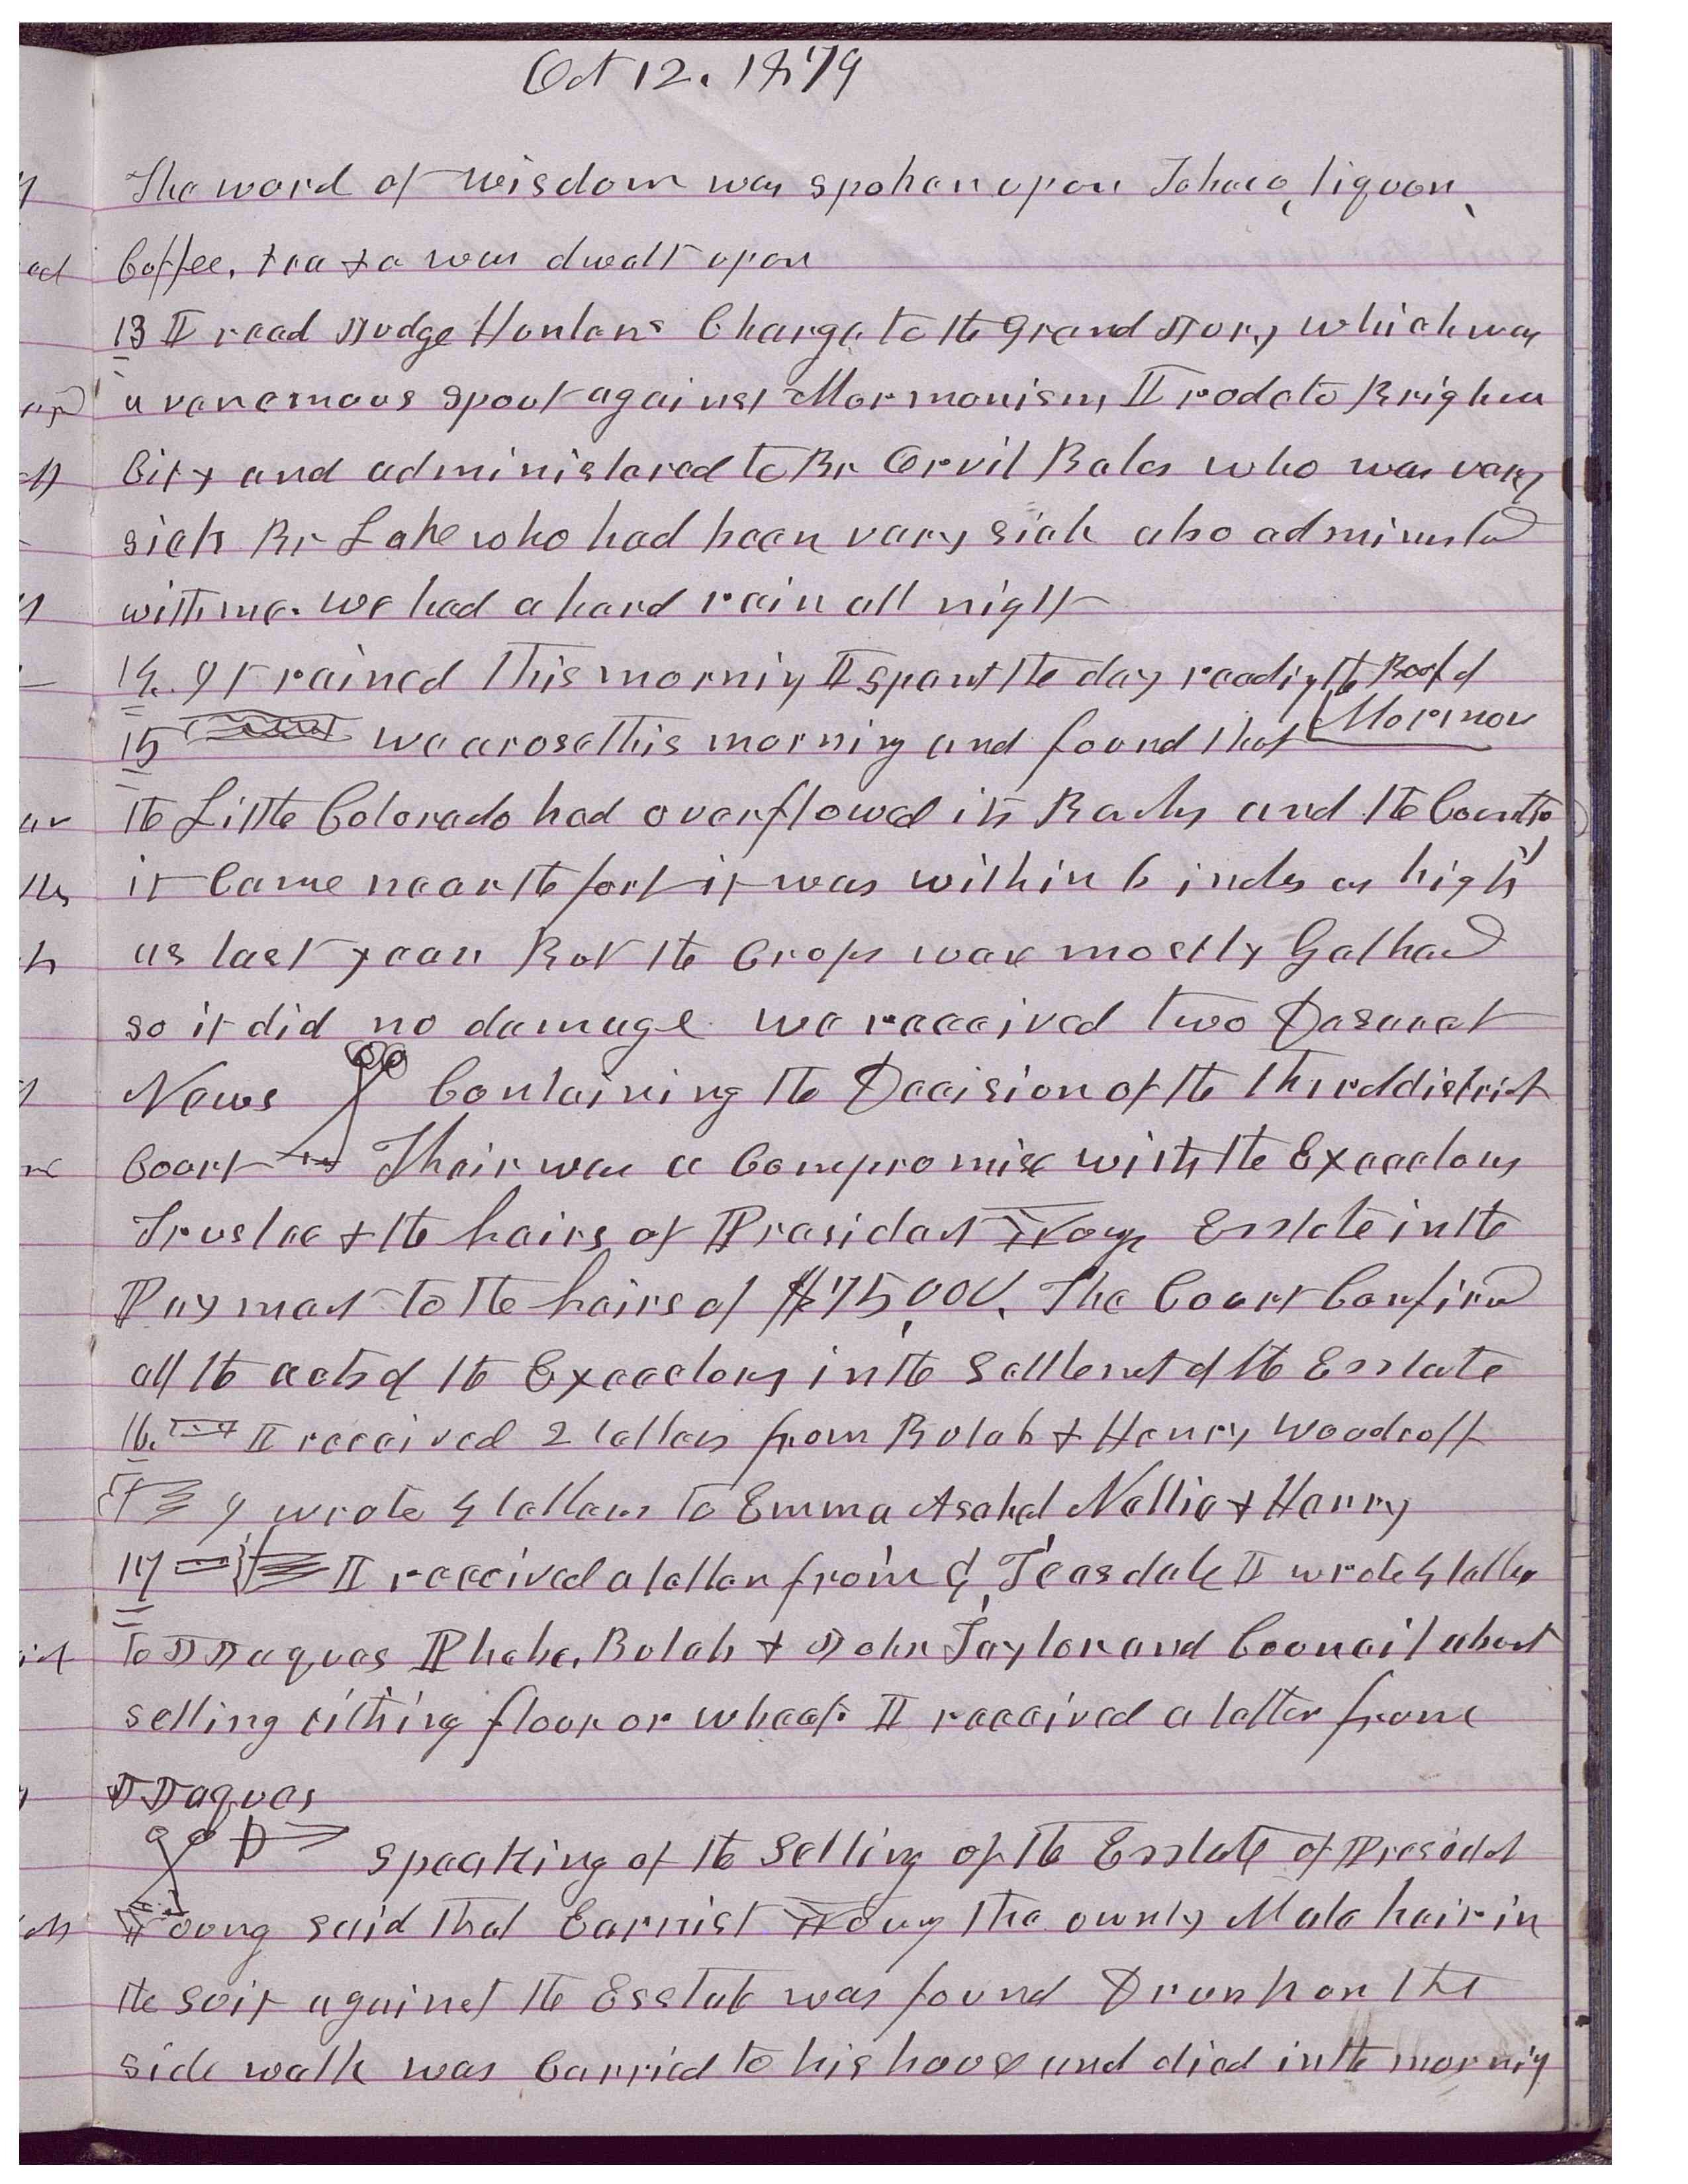 Oct 12. 1879
The word of wisdom was spoken upon Tobaco, liquor,
Coffee, tea &c was dwelt upon
13 I read Judge Hunters Charge to the grand Jury which was
a venemous spout against Mormonism I rode to Brigham
City and administered to Br Orvil Bates who was very
sick Br Lake who had been very sick also administed
with me. we had a hard rain all night
14. It rained this morning I spent the day reading the Book of
Mormon
15 we arose this morning and found that
the Little Colorado had overflowed its Banks and the Country
it Came near the fort it was within 6 inches as high
as last year But the Crops ware mostly Gathered
so it did no damage we received two Deseret
News Containing the Decision of the third district
Court Their was a Compromise with the Executors
Trustee & the heirs of President Youngs Esstate in the
Payment to the heirs of $75,000. The Court Confirmed
all the acts of the Executors in the settlement of the Esstate
16. I received 2 letters from Bulah & Henry Woodruff
I wrote 4 letters to Emma Asahel Nellie & Henry
17 I received a letter from G, Teasdale I wrote 4 letters
to J Jaques Phebe, Bulah & John Taylor and Councił about
selling tithing flour or wheat. I received a letter from
J Jaques
speaking of the Selling of the Esstate of Presidet
Young said that Earnist Young the ownly Male heir in
the Suit against the Esstate was found Drunk on the
side walk was Carried to his house and died in the morning